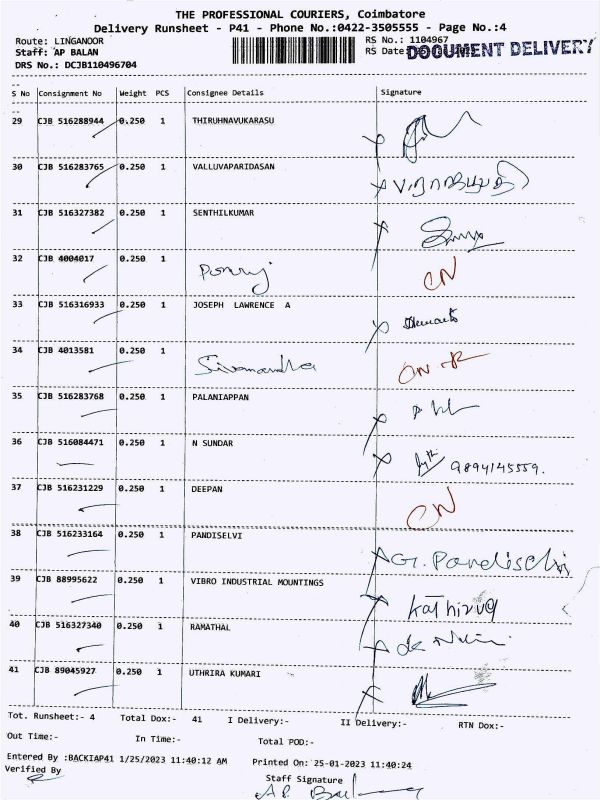 THE PROFESSIONAL COURIERS, Coimbatore
Delivery Runsheet - P41 - Phone No.:0422-3505555 - Page No.:4
Route: LINGANOOR
Staff: AP BALAN
DRS No.: DCJB110496704
RS No.: 1104967
RS Date
DOCUMENT DELIVERY
S No Consignment No Weight PCS Consignee Details Signature
29 CJB 516288944 0.250 1 THIRUHNAVUKARASU
30 CJB 516283765 0.250 1 VALLUVAPARIDASAN
31 CJB 516327382 0.250 1 SENTHILKUMAR
32 CJB 4004017 0.250 1 CN
33 CJB 516316933 0.250 1 JOSEPH LAWRENCE A
34 CJB 4013581 0.250 1
35 CJB 516283768 0.250 1 PALANIAPPAN
36 CJB 516084471 0.250 1 N SUNDAR 9894145559.
37 CJB 516231229 0.250 1 DEEPAN CN
38 CJB 516233164 0.250 1 PANDISELVI G. Pandiselvi
39 CJB 88995622 0.250 1 VIBRO INDUSTRIAL MOUNTINGS
40 CJB 516327340 0.250 1 RAMATHAL
41 CJB 89045927 0.250 1 UTHRIRA KUMARI
Tot. Runsheet:- 4 Total Dox:- 41 I Delivery:- II Delivery:- RTN Dox:-
Out Time:- In Time:- Total POD:-
Entered By :BACKIAP41 1/25/2023 11:40:12 AM Printed On: 25-01-2023 11:40:24
Verified By
Staff Signature